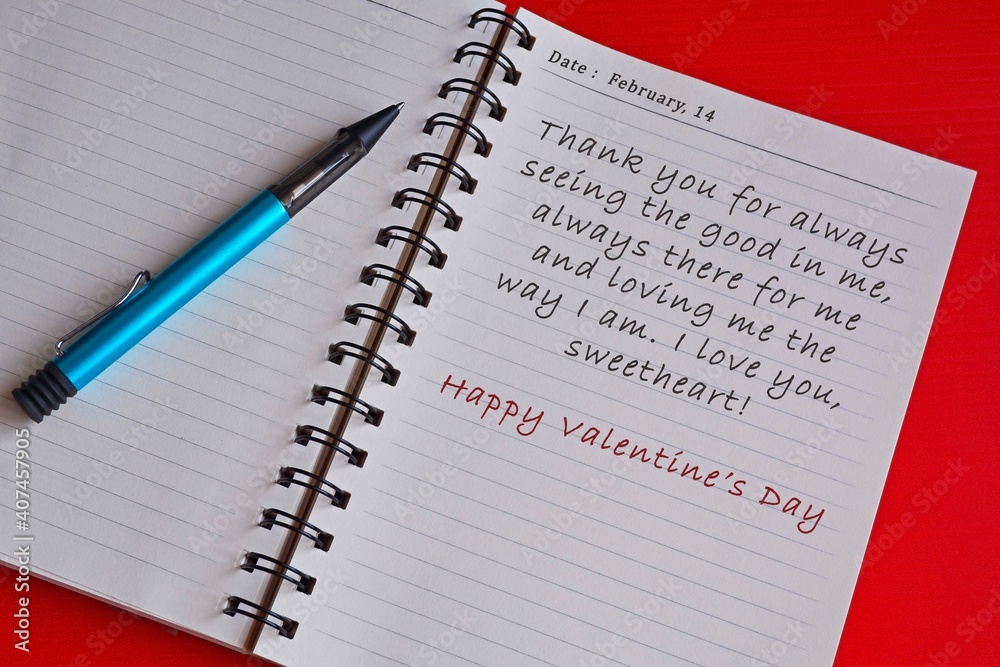 Date : February, 14
Thank you for always
seeing the good in me,
always there for me
and loving me the
way I am. I love you,
sweetheart!
Happy Valentine's Day
Adobe Stock | #407457905